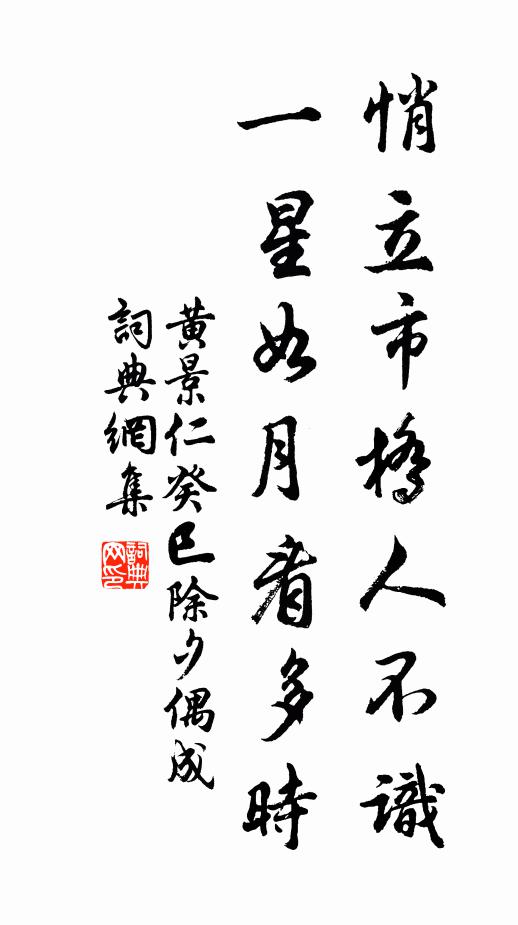 悄立市橋人不識
一星如月看多時
黃景仁癸巳除夕偶成
詞典網集
詞典
网印